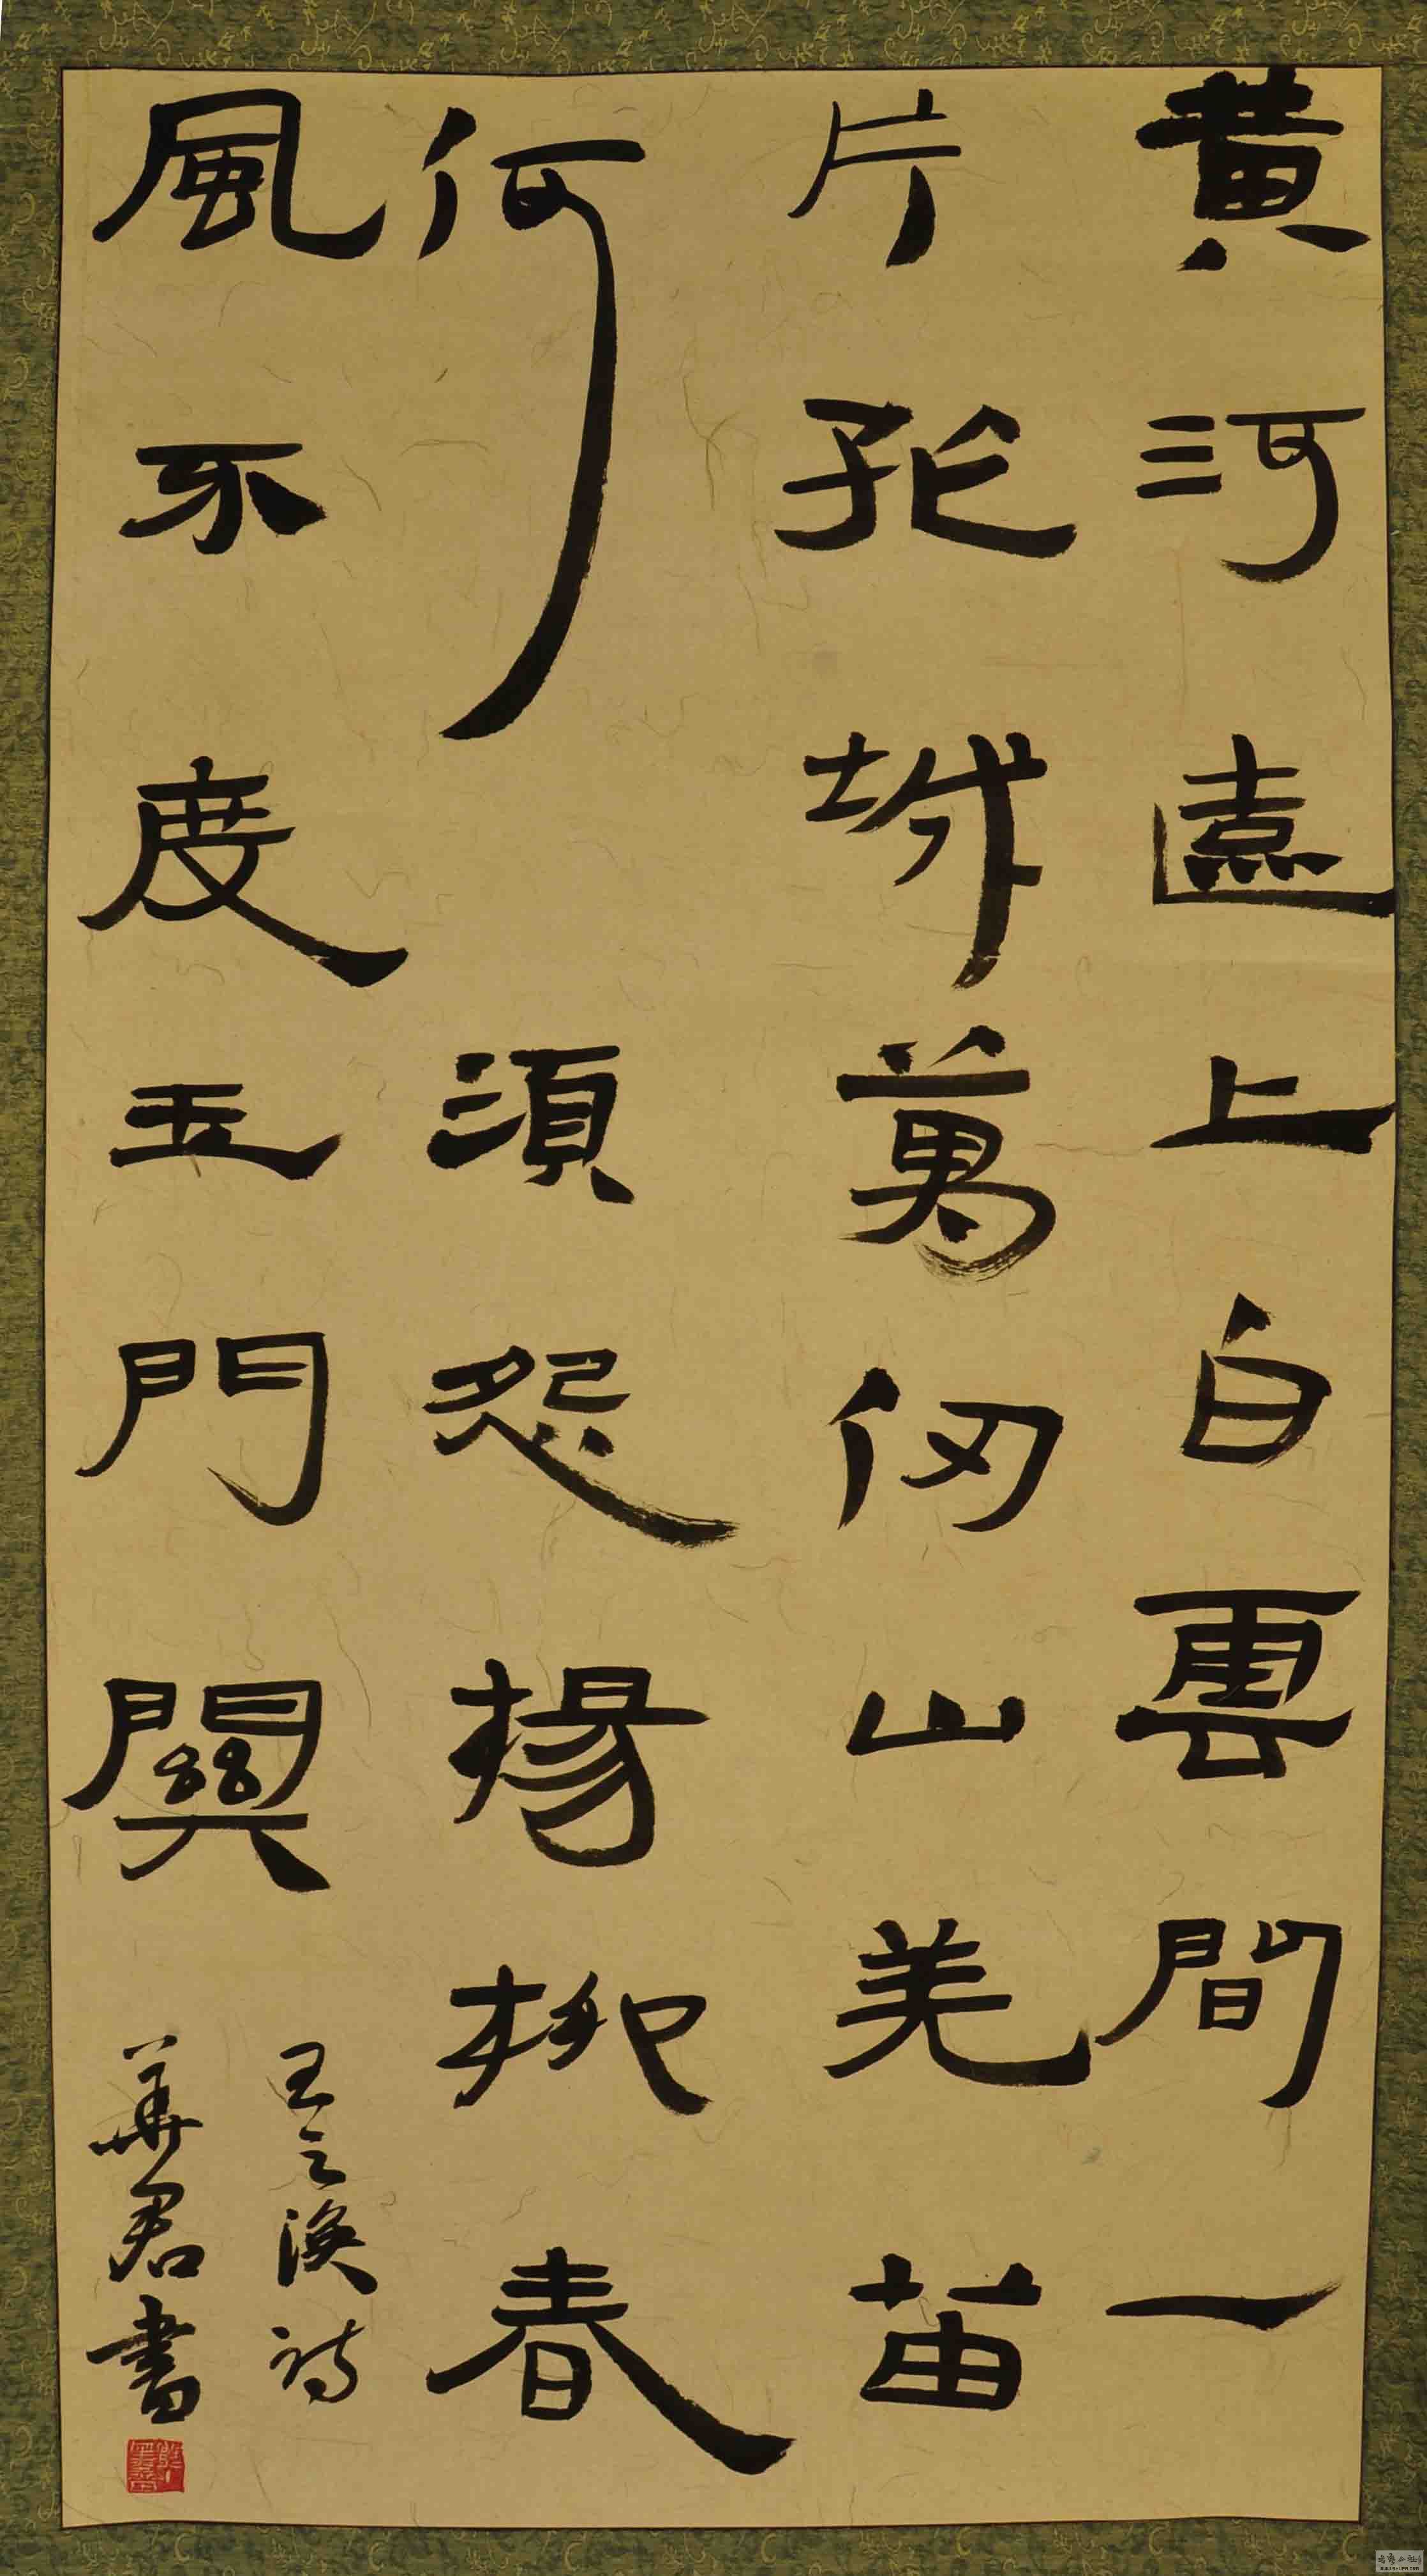 黄河遠上白雲間一
片孤城萬仞山羌苗
何須怨楊柳春
風不度玉門關
王之渙詩
華君書